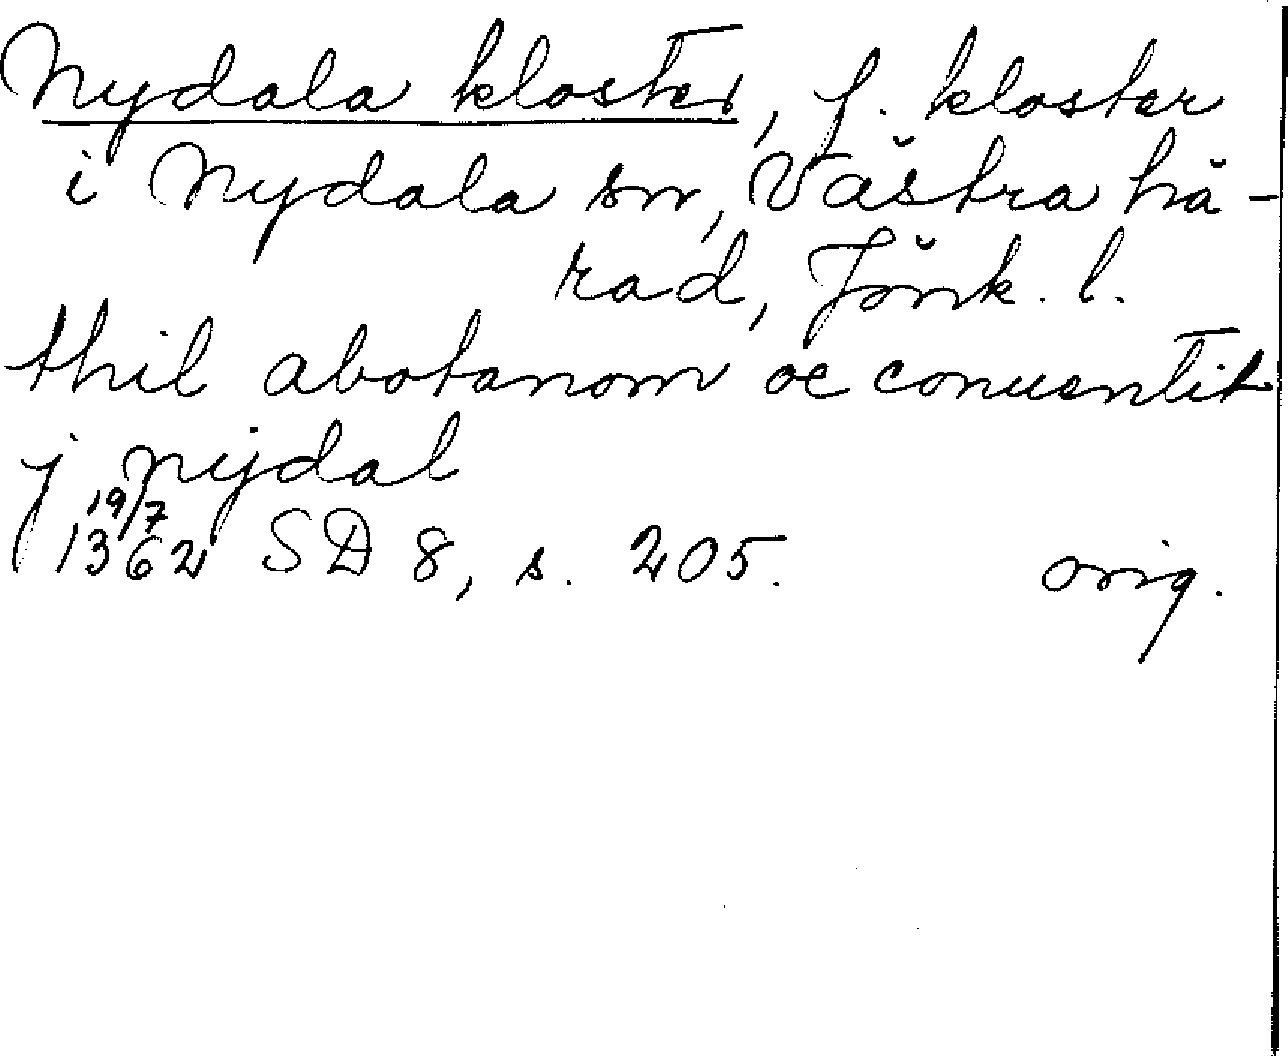 Nydala kloster, f. kloster
i Nydala sn, Västra hä-
rad, Jönk. l.
thil abotanom oc conuentit
j nijdal
19/7
1362 SD 8, s. 205. orig.